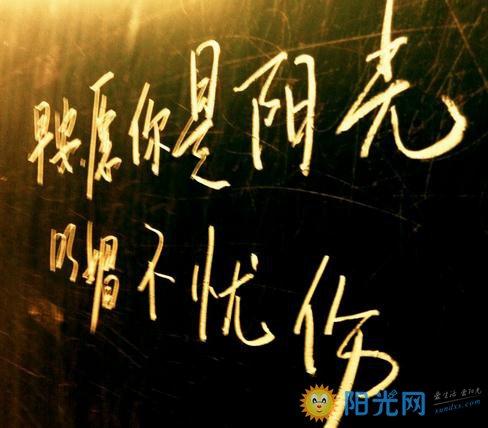 早安.愿你是阳光
明媚不忧伤
阳光网
爱生活 爱阳光
sundxs.com